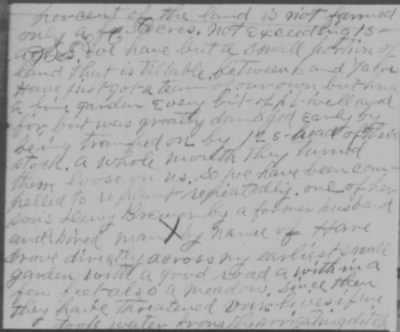 percent of the land is not farmed
only a few acres. Not Exceeding 15
acres. We have but a small portion of
land that is tillable between and 7 acre
Have just got a team of our own but have
a fine garden Every bit of it
for but was greatly damaged Early by
being tramped on by 125 head of their
stock. a whole month they turned
them loose on us. So we have been com
pelled to replant repeatedly. one of her
sons Leroy Brewer by a former husband
and hired man by name of Hare
drove directly across my earliest small
garden with a good road a within a
few feet also a meadow. Since then
they have threatened our lives if we
took water from the irrigating ditch